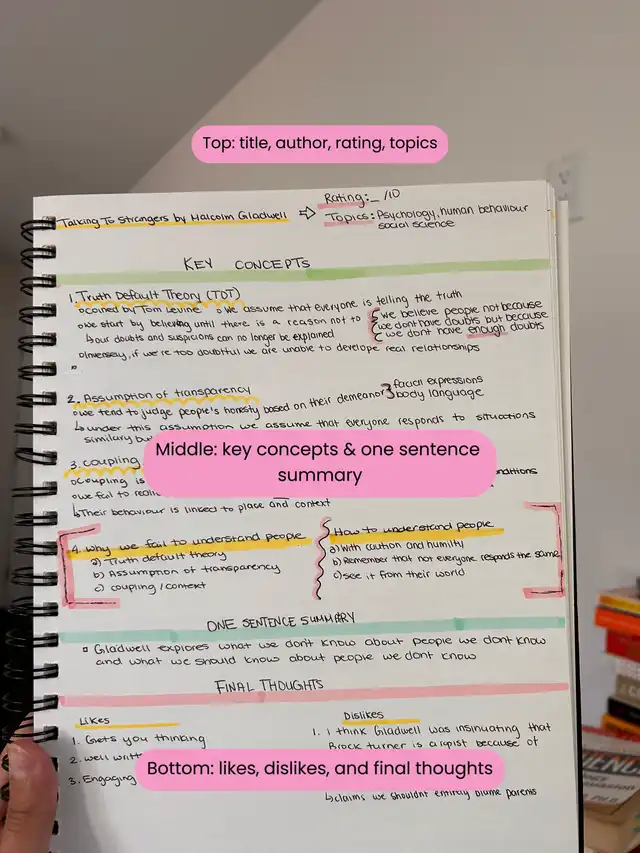 Top: title, author, rating, topics
Talking To Strangers by Malcolm Gladwell
Rating:_/10
Topics: Psychology, human behaviour
social science
KEY CONCEPTS
1. Truth Default Theory (TDT)
coined by Tom Levine
we assume that everyone is telling the truth
we start by believing until there is a reason not to
our doubts and suspicions can no longer be explained
we believe people not because
we dont have doubts but because
we dont have enough doubts
if we're too doubtful we are unable to develope real relationships
2. Assumption of transparency
we tend to judge people's honesty based on their demeanor
facial expressions
body language
under this assumption we assume that everyone responds to situations
similary
Middle: key concepts & one sentence
summary
3. coupling
coupling is
onditions
we fail to
Their behaviour is linked to place and context
4. Why we fail to understand people
a) Truth default theory
b) Assumption of transparency
c) coupling/context
How to understand people
a) With caution and humilty
b) Remember that not everyone responds the same
c) see it from their world
ONE SENTENCE SUMMARY
Gladwell explores what we don't know about people we dont know
and what we should know about people we dont know
FINAL THOUGHTS
Likes
1. Gets you thinking
2. well
3. Engaging
Dislikes
1. I think Gladwell was insinuating that
Brock turner is a rapist because of
Bottom: likes, dislikes, and final thoughts
claims we shouldnt entirely blume parents